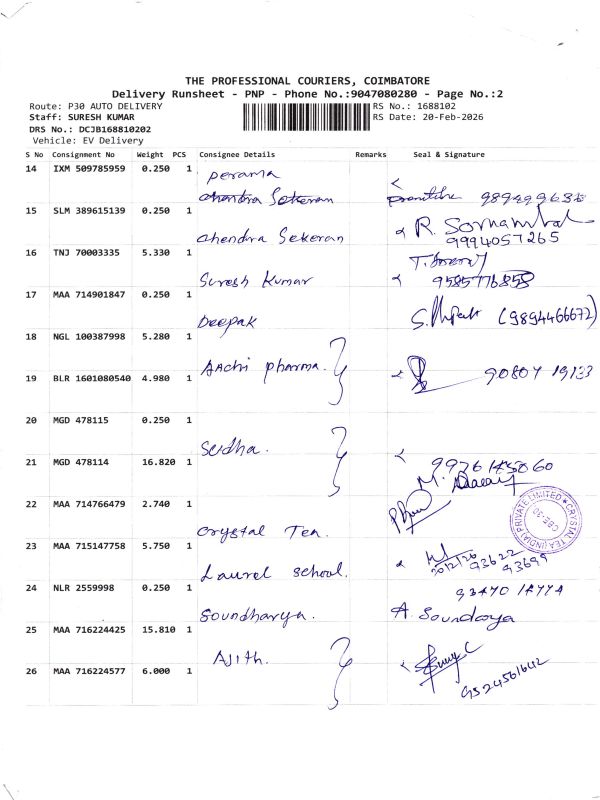 THE PROFESSIONAL COURIERS, COIMBATORE
Delivery Runsheet - PNP - Phone No.:9047080280 - Page No.:2
Route: P30 AUTO DELIVERY
Staff: SURESH KUMAR
DRS No.: DCJB168810202
Vehicle: EV Delivery
RS No.: 1688102
RS Date: 20-Feb-2026
S No Consignment No Weight PCS Consignee Details Remarks Seal & Signature
14 IXM 509785959 0.250 1 Perama
Chandra Sekeran
15 SLM 389615139 0.250 1
Chendra Sekeran R. Sornambal
9994057265
16 TNJ 70003335 5.330 1
Suresh Kumar
17 MAA 714901847 0.250 1
Deepak (9894466672)
18 NGL 100387998 5.280 1
Aachi pharma.
19 BLR 1601080540 4.980 1 90804 19133
20 MGD 478115 0.250 1
Sudha.
21 MGD 478114 16.820 1
22 MAA 714766479 2.740 1
Crystal Tea.
CRYSTAL TEA (INDIA) PRIVATE LIMITED
CBE-30
23 MAA 715147758 5.750 1
Laurel school.
20/2/26 93622
93699
24 NLR 2559998 0.250 1
Soundharya. A. Soundarya
25 MAA 716224425 15.810 1
Ajith.
26 MAA 716224577 6.000 1
9524561642